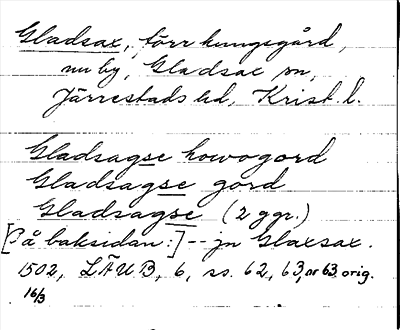 Gladsax, förr kungsgård,
nu by, Gladsax sn,
Järrestads hd, Krist. l.
Gladsagse howogord
Gladsagse gord
Gladsagse (2 ggr.)
[På baksidan:] -- jn Glaxsax.
1502, LÄUB, 6, ss. 62, 63, nr 63 orig.
16/3